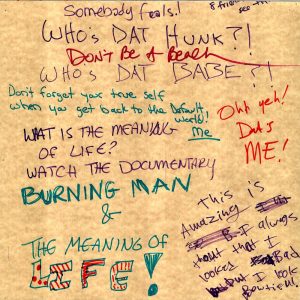 Somebody feels!
8 friends
see the
WHO'S DAT HUNK?!
DON'T BE A Beach
WHO'S DAT BABE?!
Don't forget your true self
when you get back to the Default
World!
Me
Ohh yeh!
Dat's
ME!
WAT IS THE MEANING
OF LIFE?
WATCH THE DOCUMENTARY
BURNING MAN
&
THE MEANING OF
LIFE!
this is
Amazing
always
that I
looked Bad
But I look
Bewtiful